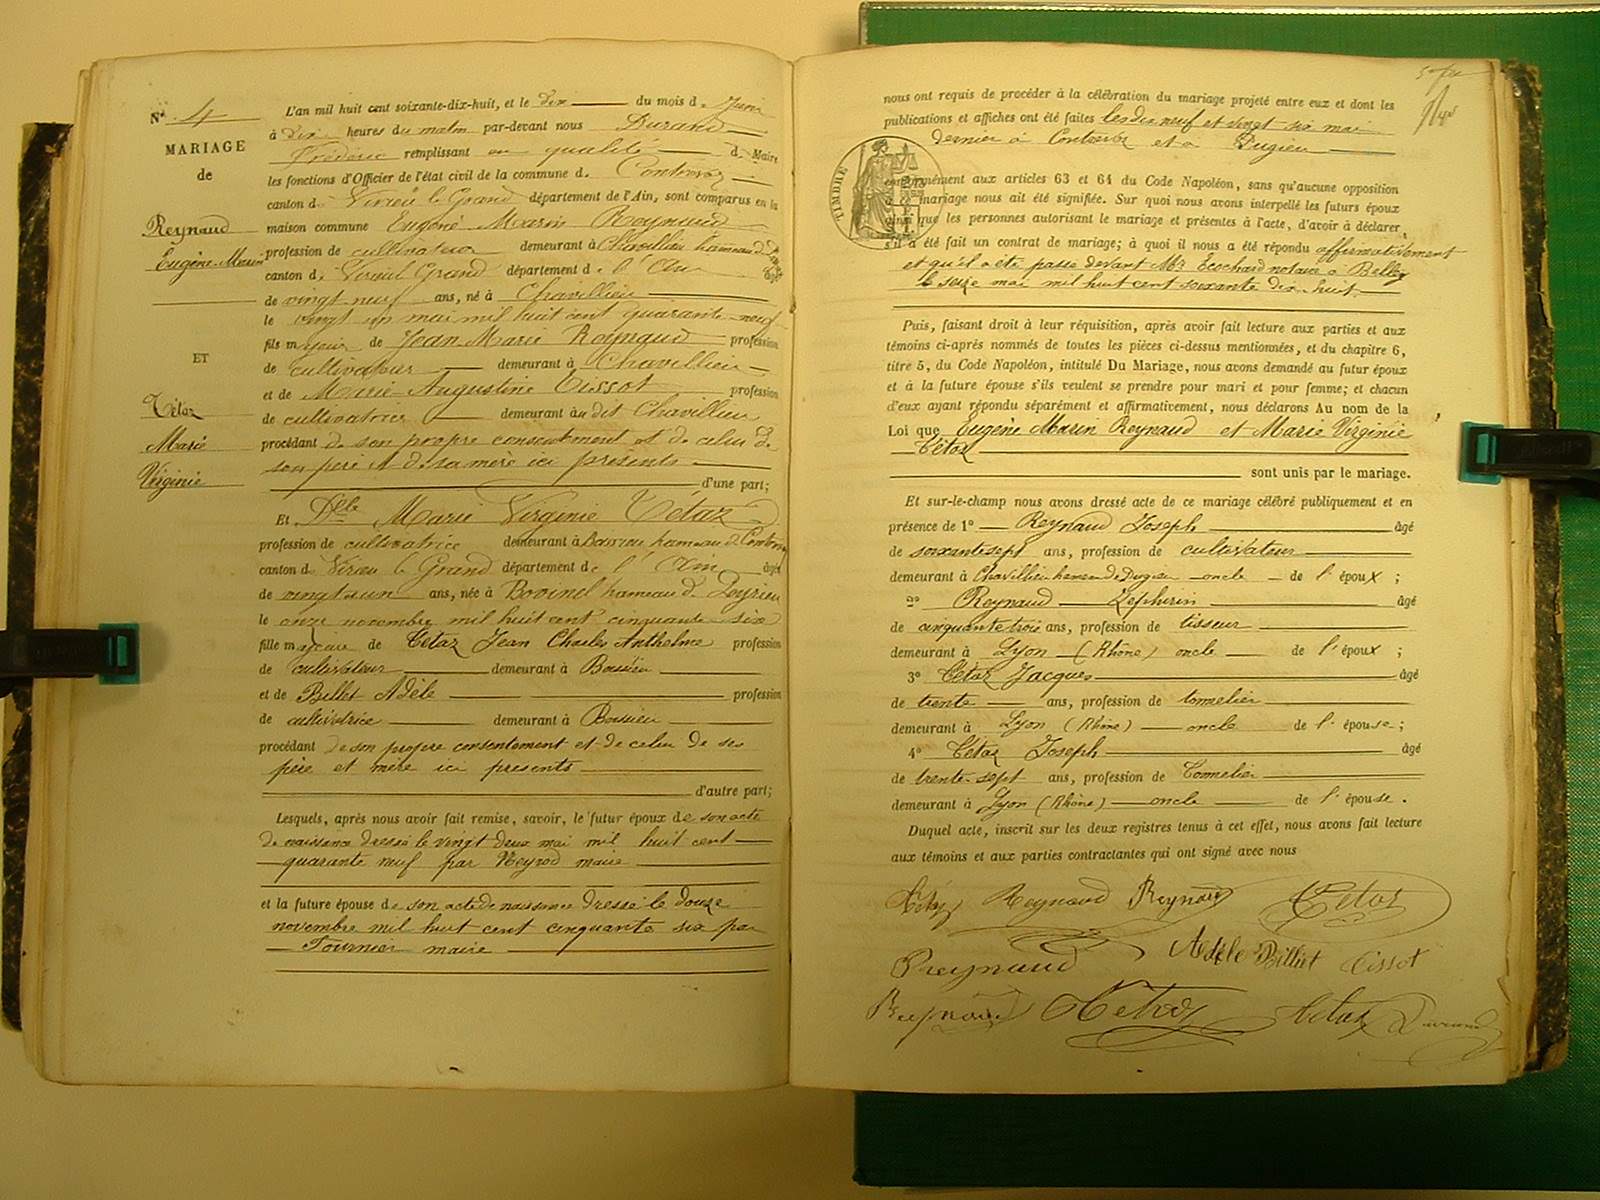 N° 4
MARIAGE
de
Reynaud
Eugène Marin
ET
Tétaz
Marie
Virginie
L'an mil huit cent soixante-dix-huit, et le dix du mois de Juin
à dix heures du matin par-devant nous Durand
Frédéric remplissant en qualité de Maire
les fonctions d'Officier de l'état civil de la commune de Contrevoz
canton de Virieu le Grand département de l'Ain, sont comparus en la
maison commune Eugène Marin Reynaud
profession de cultivateur demeurant à Chavillieu hameau de
canton de Virieu le Grand département de l'Ain âgé
de vingt neuf ans, né à Chavillieu
le vingt un mai mil huit cent quarante neuf
fils majeur de Jean Marie Reynaud profession
de cultivateur demeurant à Chavillieu
et de Marie Augustine Tissot profession
de cultivatrice demeurant au dit Chavillieu
procédant de son propre consentement et de celui de
son père et de sa mère ici présents
d'une part;
Et Delle Marie Virginie Tétaz
profession de cultivatrice demeurant à Boissieu hameau de Contrevoz
canton de Virieu le Grand département de l'Ain âgée
de vingt un ans, née à Bovinel hameau de Peyrieu
le onze novembre mil huit cent cinquante six
fille majeure de Tétaz Jean Charles Anthelme profession
de cultivateur demeurant à Boissieu
et de Billet Adèle profession
de cultivatrice demeurant à Boissieu
procédant de son propre consentement et de celui de ses
père et mère ici présents
d'autre part;
Lesquels, après nous avoir fait remise, savoir, le futur époux de son acte
de naissance dressé le vingt deux mai mil huit cent
quarante neuf par Neyrod maire
et la future épouse de son acte de naissance dressé le douze
novembre mil huit cent cinquante six par
Tournier maire
nous ont requis de procéder à la célébration du mariage projeté entre eux et dont les
publications et affiches ont été faites les dix neuf et vingt six mai
dernier à Contrevoz et à Pugieu
TIMBRE
conformément aux articles 63 et 64 du Code Napoléon, sans qu'aucune opposition
à mariage nous ait été signifiée. Sur quoi nous avons interpellé les futurs époux
ainsi que les personnes autorisant le mariage et présentes à l'acte, d'avoir à déclarer
s'il a été fait un contrat de mariage; à quoi il nous a été répondu affirmativement
et qu'il a été passé devant Me Ecochard notaire à Belley
le seize mai mil huit cent soixante dix huit
Puis, faisant droit à leur réquisition, après avoir fait lecture aux parties et aux
témoins ci-après nommés de toutes les pièces ci-dessus mentionnées, et du chapitre 6,
titre 5, du Code Napoléon, intitulé Du Mariage, nous avons demandé au futur époux
et à la future épouse s'ils veulent se prendre pour mari et pour femme; et chacun
d'eux ayant répondu séparément et affirmativement, nous déclarons Au nom de la
Loi que Eugène Marin Reynaud et Marie Virginie
Tétaz
sont unis par le mariage.
Et sur-le-champ nous avons dressé acte de ce mariage célébré publiquement et en
présence de 1° Reynaud Joseph âgé
de soixante sept ans, profession de cultivateur
demeurant à Chavillieu hameau de Pugieu oncle de l'époux ;
2° Reynaud Zéphirin âgé
de cinquante trois ans, profession de tisseur
demeurant à Lyon (Rhône) oncle de l'époux ;
3° Tétaz Jacques âgé
de trente ans, profession de tonnelier
demeurant à Lyon (Rhône) oncle de l'épouse ;
4° Tétaz Joseph âgé
de trente-sept ans, profession de Tonnelier
demeurant à Lyon (Rhône) oncle de l'épouse.
Duquel acte, inscrit sur les deux registres tenus à cet effet, nous avons fait lecture
aux témoins et aux parties contractantes qui ont signé avec nous
Tétaz Reynaud Reynaud Tétaz
Reynaud Adèle Billiet Tissot
Reynaud Tétaz Tétaz Durand